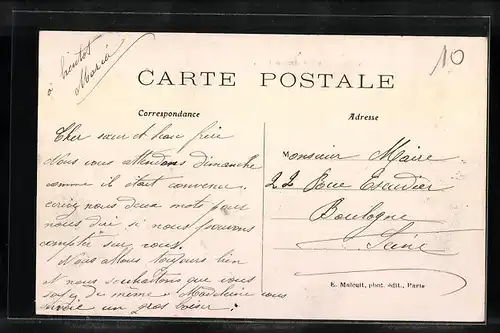 à bientot
Maria
10
CARTE POSTALE
Correspondance
Adresse
Cher sœur et beau frère
Nous vous attendons dimanche
comme il était convenu.
nous deux mots pour
nous dire si nous pouvons
compter sur vous.
Nous allons toujours bien
et nous souhaitons que vous
de même. Madeleine vous
envoie un gros baiser.
Monsieur Maire
22 Rue Escudier
Boulogne
Seine
E. Malcuit, phot. édit., Paris